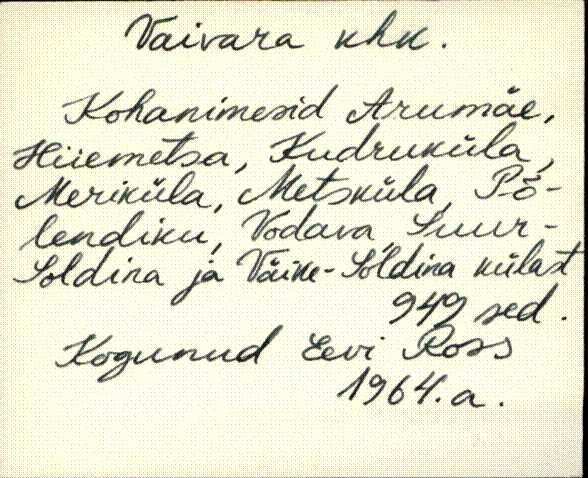 Vaivara khk.
Kohanimesid Arumäe,
Hiiemetsa, Kudruküla,
Meriküla, Metsküla, Põ-
lendiku, Vodava Suur-
Soldina ja Väike-Soldina külast
949 sed.
Kogunud Eevi Ross
1964.a.